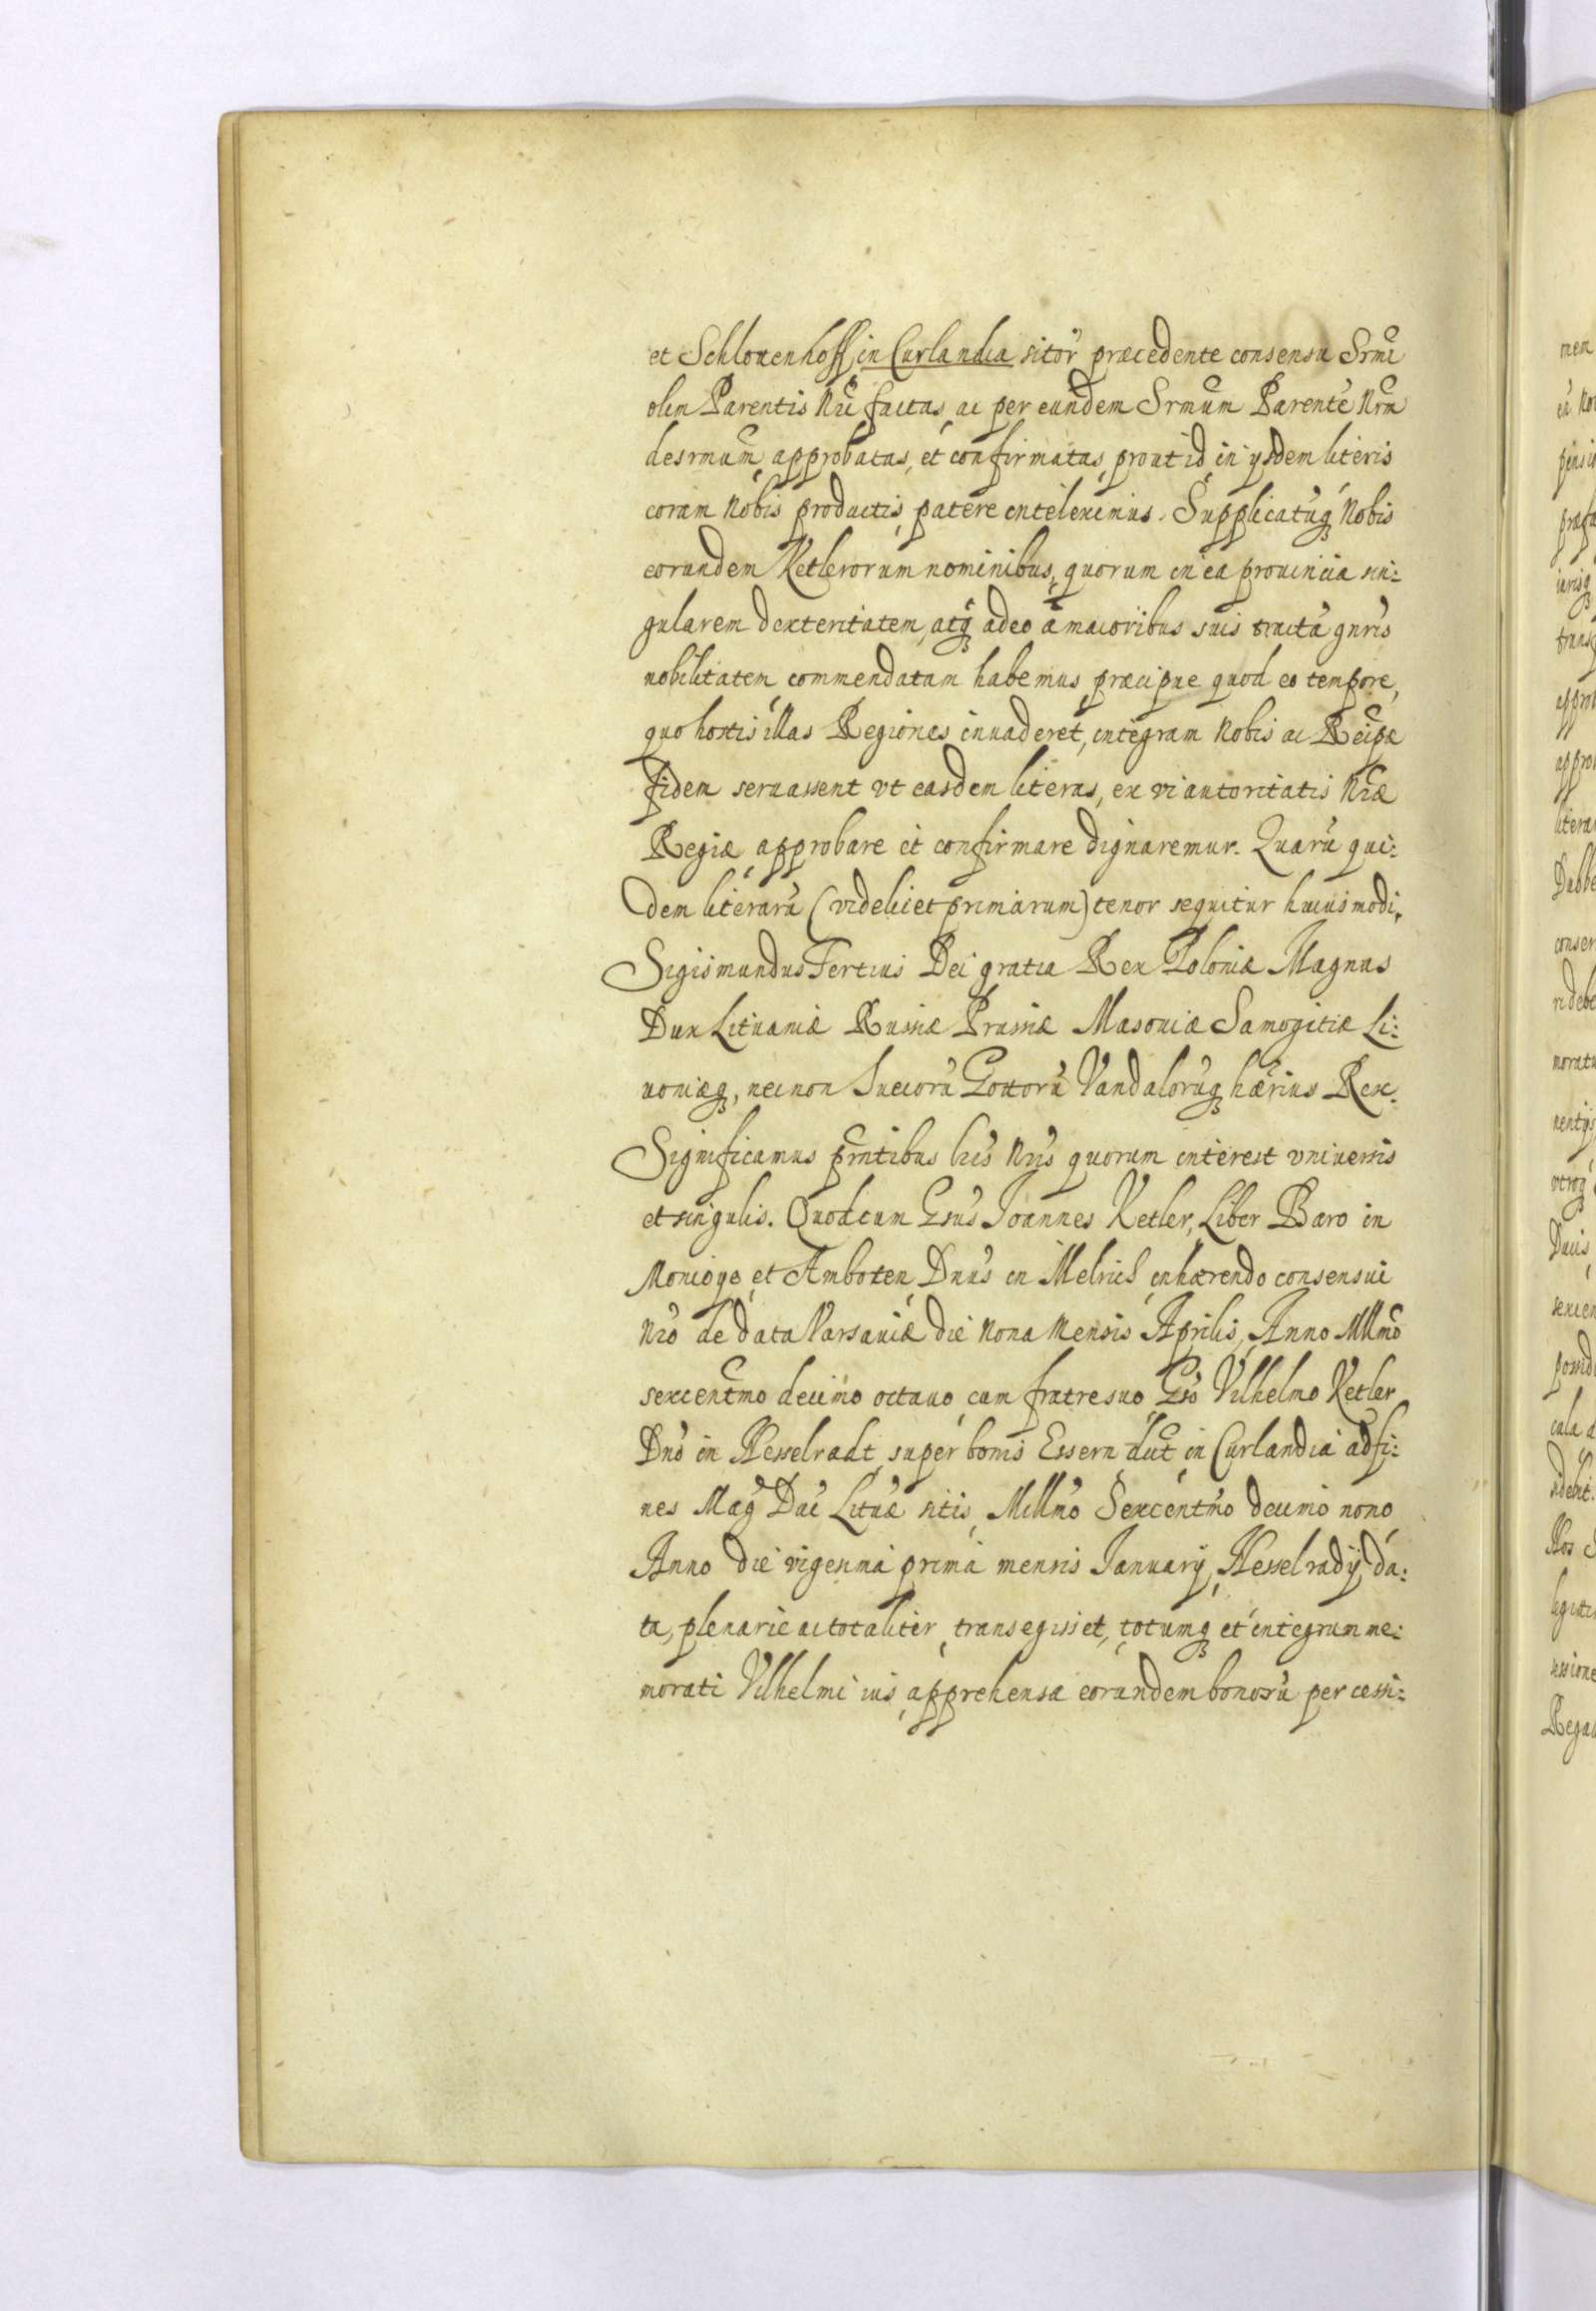 et Schlouenhoff, in Curlandia sitor̃ præcedente consensu Srmi
olim Parentis Nri factas, ac per eundem Srmum Parentẽ Nrm
desrmum approbatas, et confirmatas, prout id in ysdem literis
coram Nobis productis, patere inteleximus. Supplicatũq Nobis
eorundem Ketlerorum nominibus, quorum in ea prouincia sin:
gularem dexteritatem, atq adeo a maioribus suis gnris
nobilitatem commendatam habemus, præcipue quod eo tempore,
quo hostis illas Regiones inuaderet, integram Nobis ac Reipæ
fidem seruassent vt easdem literas, ex vi autoritatis Nræ
Regiæ approbare et confirmare dignaremur. Quarũ qui:
dem literarũ (videlicet primarum) tenor sequitur huiusmodi.
Sigismundus Tertius Dei gratia Rex Poloniæ Magnus
Dux Lituaniæ Russiæ Prussiæ Masouiæ Samogitiæ Li:
uoniæq, nec non Suecorũ Gottorũ Vandalorũq hærius Rex.
Significamus pntibus lris Nris quorum interest vniuersis
et singulis. Quod cum Gsus Joannes Ketler, Liber Baro in
Monioye et Amboten, Dnus in Melrich inhærendo consensui
Nro de data Varsauiæ die nona Mensis Aprilis, Anno Mllmo
sexcentmo decimo octauo cum fratre suo Gso Vilhelmo Ketler
Dno in Nesselradt super bonis Essern dict in Curlandia ad fi:
nes Mag Dući Lituæ sitis, Millmo Sexcentmo decimo nono
Anno die vigesima prima mensis January, Nesselradÿ da:
ta, plenarie ac totaliter transegisset, totumq et integrum me:
morati Vilhelmi ius, apprehensa eorundem bonorũ per cessi:
men
ea